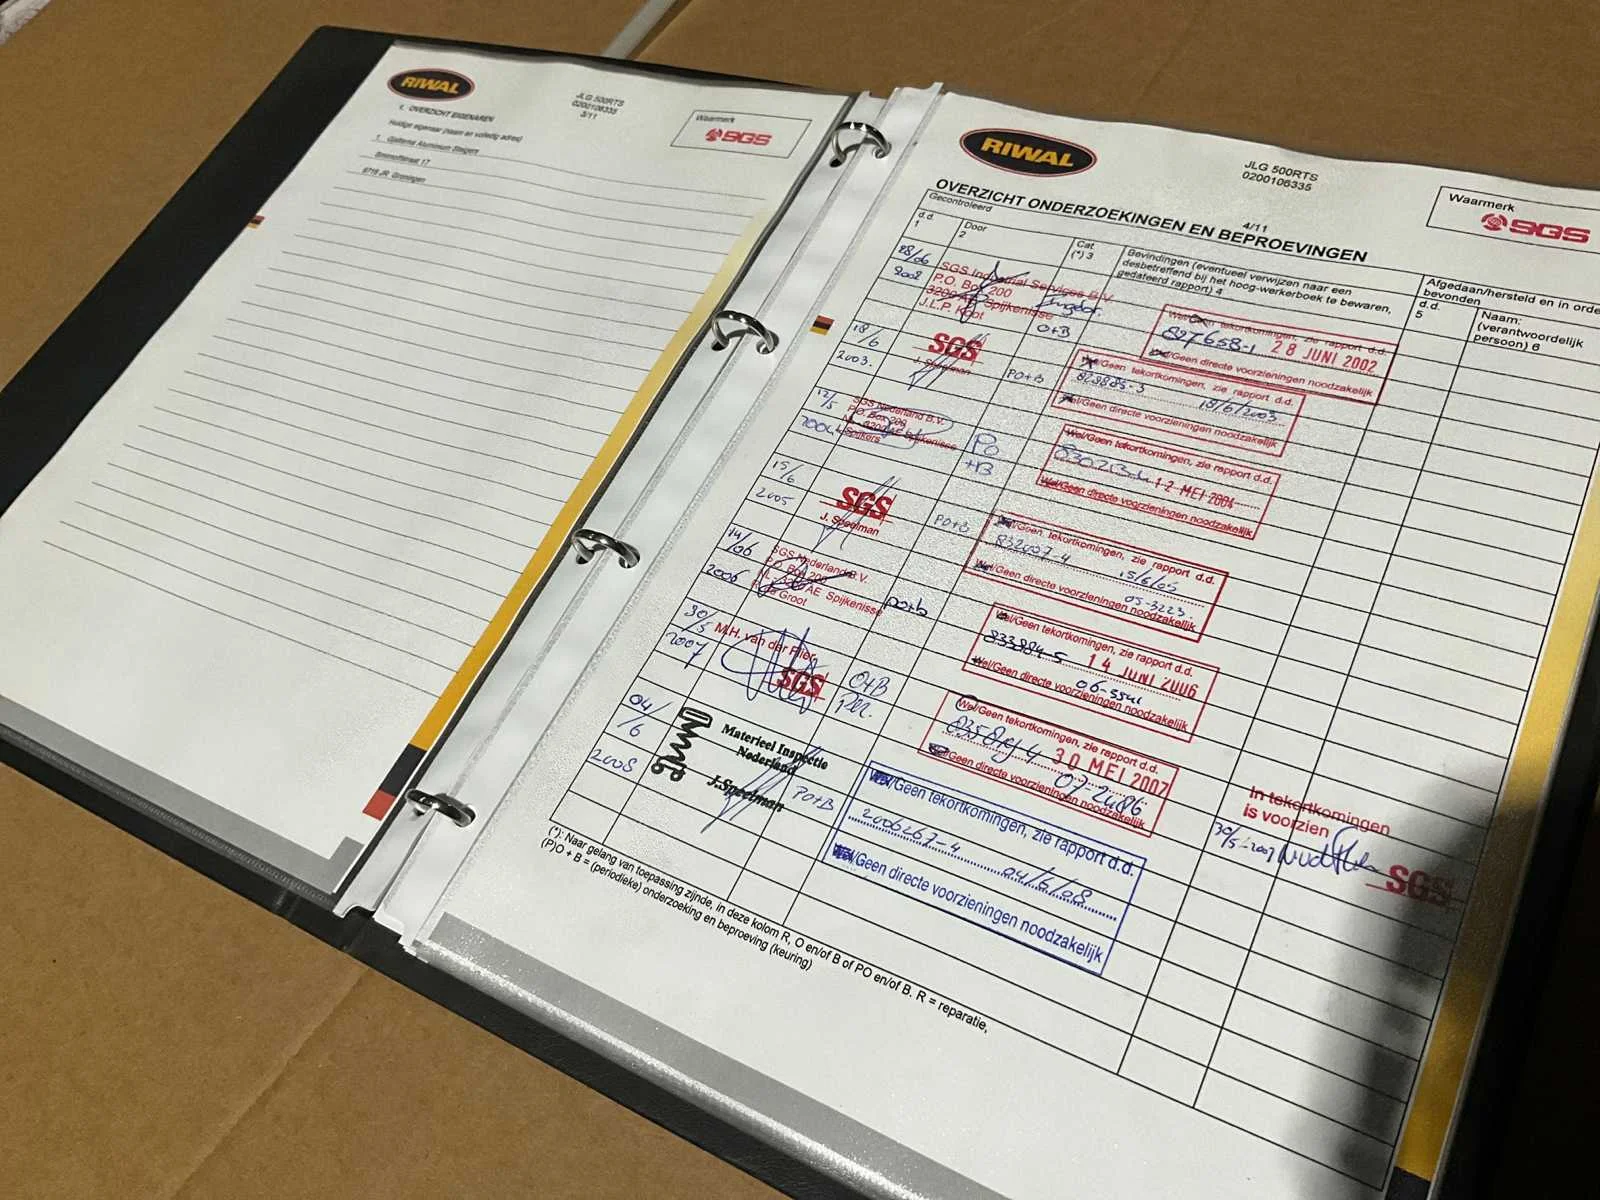 RIWAL
JLG 500RTS
0200106335
3/11
Waarmerk
SGS
1. OVERZICHT EIGENAREN
Huidige eigenaar (naam en volledig adres)
1. Gjaltema Aluminium Steigers
17
9716 JR Groningen
RIWAL
JLG 500RTS
0200106335
4/11
Waarmerk
SGS
OVERZICHT ONDERZOEKINGEN EN BEPROEVINGEN
Gecontroleerd
d.d.
1
Door
2
Cat
(*) 3
Bevindingen (eventueel verwijzen naar een
desbetreffend bij het hoog-werkerboek te bewaren,
gedateerd rapport) 4
Afgedaan/hersteld en in orde
bevonden
d.d.
5
Naam:
(verantwoordelijk
persoon) 6
28/06
2002
SGS Industrial Services B.V.
P.O. Box 200
3200 AE Spijkenisse
J.L.P. Koot
O+B
Wel/Geen tekortkomingen, zie rapport d.d.
827658-1 28 JUNI 2002
Wel/Geen directe voorzieningen noodzakelijk
18/6
2003.
SGS
J. Speelman
PO+B
Wel/Geen tekortkomingen, zie rapport d.d.
828885-3 18/6/2003
Wel/Geen directe voorzieningen noodzakelijk
12/5
2004
SGS Nederland B.V.
P.O. Box 200
NL - 3200 AE Spijkenisse
Spijkers
PO
+B
Wel/Geen tekortkomingen, zie rapport d.d.
12 MEI 2004
Wel/Geen directe voorzieningen noodzakelijk
15/6
2005
SGS
J. Speelman
PO+B
Wel/Geen tekortkomingen, zie rapport d.d.
832007-4 15/6/05
05-3223
Wel/Geen directe voorzieningen noodzakelijk
14/06
2006
SGS Nederland B.V.
P.O. Box 200
NL - 3200 AE Spijkenisse
Groot
PO+b
Wel/Geen tekortkomingen, zie rapport d.d.
833884-5 14 JUNI 2006
06-5541
Wel/Geen directe voorzieningen noodzakelijk
30/5
2007
M.H. van der Plier
SGS
O+B
Wel/Geen tekortkomingen, zie rapport d.d.
30 MEI 2007
07-2486
Wel/Geen directe voorzieningen noodzakelijk
In tekortkomingen
is voorzien
30/5-2007
SGS
04/6
2008
Materieel Inspectie
Nederland
J.Speelman
PO+B
Wel/Geen tekortkomingen, zie rapport d.d.
2006267-4 04/6/08
Wel/Geen directe voorzieningen noodzakelijk
(*): Naar gelang van toepassing zijnde, in deze kolom R, O en/of B of PO en/of B. R = reparatie,
(P)O + B = (periodieke) onderzoeking en beproeving (keuring)